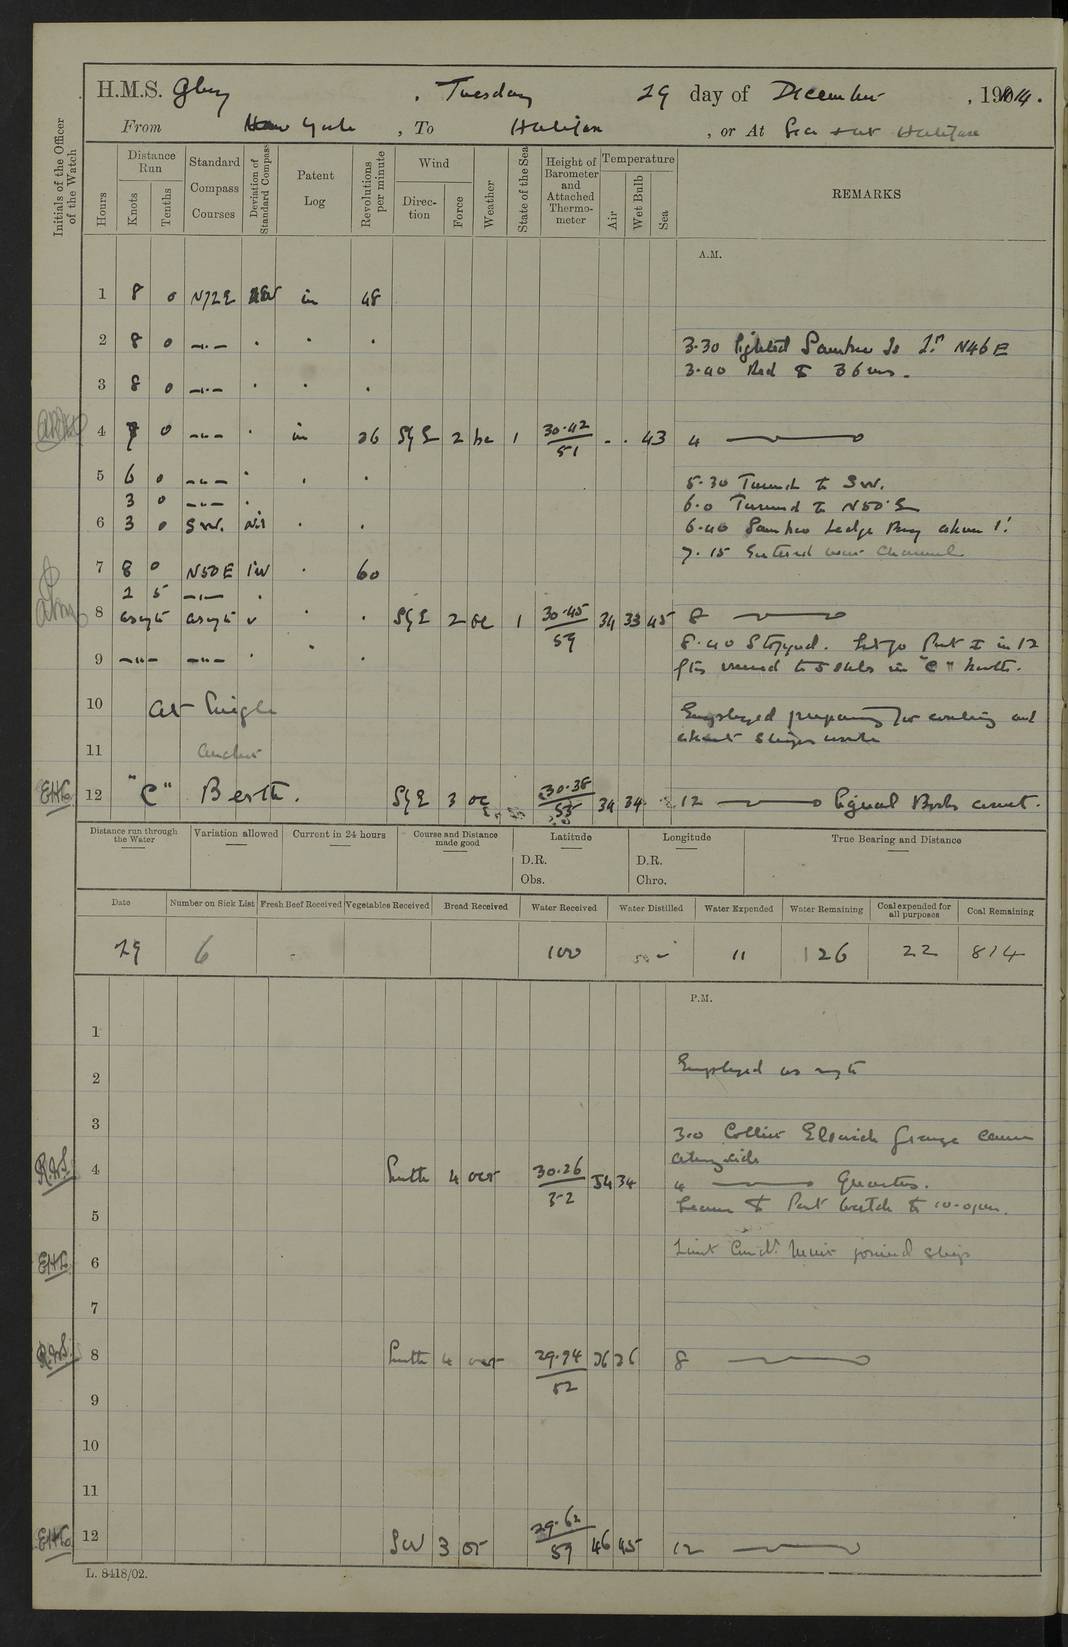 H.M.S. Glory , Tuesday 29 day of December , 1914.
From New York , To Halifax , or At Sea & at Halifax
Initials of the Officer of the Watch
Hours
Distance Run
Knots
Tenths
Standard Compass Courses
Deviation of Standard Compass
Patent Log
Revolutions per minute
Wind
Direction
Force
Weather
State of the Sea
Height of Barometer and Attached Thermometer
Temperature
Air
Wet Bulb
Sea
REMARKS
A.M.
1 8 0 N72E in 48
2 8 0 —.— . . .
3.30 Sighted Sambro Is Lt N46E
3.40 Red to 36 revs.
3 8 0 —.— . . .
4 7 0 —..— . in 36 S'ly E 2 bc 1 30.42 51 - . 43 4
5 6 0 —..— . . .
5.30 Turned to SW.
3 0 —..— .
6.0 Turned to N50°E
6 3 0 SW. Nil . .
6.40 Sambro Ledge Buoy abeam 1'.
7.15 Entered war Channel
7 8 0 N50E 1W . 60
2 5 —.— .
8 as req'd as req'd v . . S'ly E 2 oc 1 30.45 59 34 33 45 8
8.40 Stopped. Let go Port in 12
9 —..— —..— . . .
fms veered to 5 shks in "C" berth.
10 At Single
Employed preparing for coaling and
about ships work
11 anchor
12 "C" Berth. S'ly E 3 oc 30.38 53 34 34 12 Signal Books correct.
Distance run through the Water
Variation allowed
Current in 24 hours
Course and Distance made good
Latitude
D.R.
Obs.
Longitude
D.R.
Chro.
True Bearing and Distance
Date Number on Sick List Fresh Beef Received Vegetables Received Bread Received Water Received Water Distilled Water Expended Water Remaining Coal expended for all purposes Coal Remaining
29 6 - 100 - 11 126 22 814
P.M.
1
2
Employed as req'd
3
3.0 Collier Elswick Grange came
alongside
4 South 4 ocr 30.26 52 34 34
4 Quarters.
Leave to Port Watch to 10.0pm.
5
6
Lieut Comdr. Muir joined ship
7
8 South 4 ocr 29.94 52 36 36 8
9
10
11
12 SW 3 or 29.62 59 46 45 12
L. 8418/02.